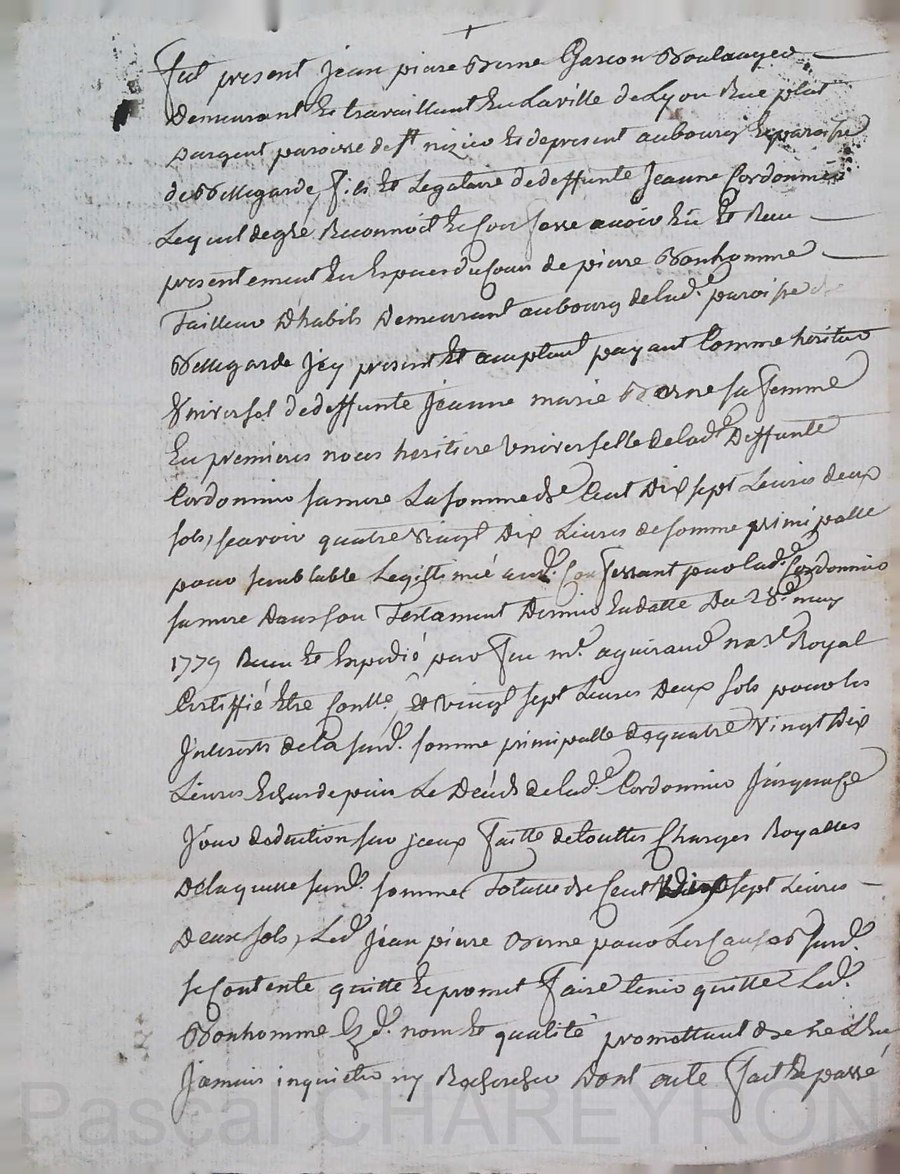 Fut present Jean piere Berne Garcon Boulanger
Demeurant et travaillant En Laville de Lyon Rue plat
Dargent paroisse de st nizier Et de present au bourg Et paroisse
de Bellegarde, fils Et Legataire de deffunte Jeanne Cordonnier
Lequel de gré Reconnoit Et Confesse avoir Eû Et Reçu
presentement En Especes du Cours de pierre Bonhomme
Tailleur Dhabits Demeurant au bourg de lad.e paroisse de
Bellegarde Jcy present Et acceptant payant Comme heritier
Universel de deffunte Jeanne marie Berne sa femme
En premieres noces heritiere Universelle de lad.e Deffunte
Cordonnier sa mere La somme de Cent Dix sept Livres deux
sols, scavoir quatre Vingt Dix Livres de somme principalle
pour semblable Legs fait aud. Confessant par lad.e Cordonnier
sa mere Dans son Testament Dernier En datte Du 28.e may
1779 Recu Et Expedié par feu m.e aguiraud no.re Royal
Certiffié Etre Contt.é, Et vingt sept Livres Deux sols pour les
Jnterests de la susd. somme principalle de quatre Vingt Dix
Livres Echus depuis Le Décés de lad.e Cordonnier Jusqua ce
Jour deduction sur jceux faitte de touttes Charges Royalles
De laquelle susd. somme Totalle de Cent Dix sept Livres
Deux sols, Led. Jean piere Berne pour Les Causes susd.
se Contente quitte Et promet faire tenir quitte Led.
Bonhomme Ezd. nom Et qualité promettant de ne L'En
Jamais inquietter ny Rechercher Dont acte fait Et passé
Pascal CHAREYRON